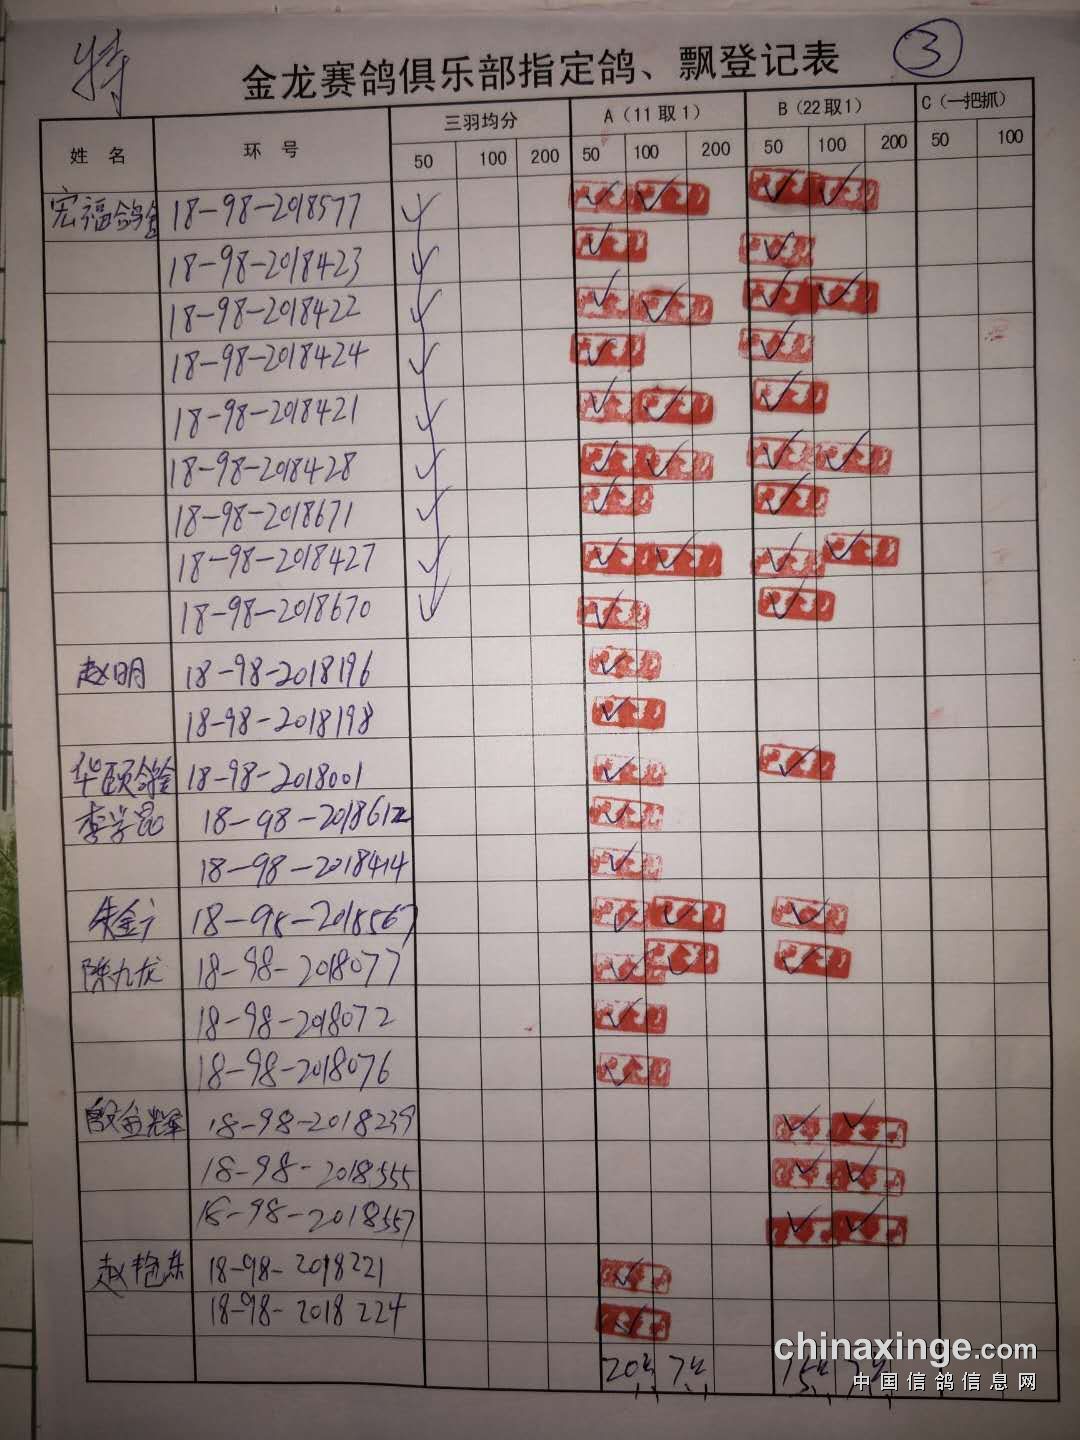 特
金龙赛鸽俱乐部指定鸽、飘登记表 ③
姓名 环号 三羽均分 A（11取1） B（22取1） C（一把抓）
50 100 200 50 100 200 50 100 200 50 100
宏福鸽舍 18-98-2018577 ✓ ✓ ✓ ✓ ✓
18-98-2018423 ✓ ✓ ✓
18-98-2018422 ✓ ✓ ✓ ✓ ✓
18-98-2018424 ✓ ✓ ✓
18-98-2018421 ✓ ✓ ✓ ✓
18-98-2018428 ✓ ✓ ✓ ✓ ✓
18-98-2018671 ✓ ✓ ✓
18-98-2018427 ✓ ✓ ✓ ✓ ✓
18-98-2018670 ✓ ✓ ✓
赵明 18-98-2018196 ✓
18-98-2018198 ✓
华颐鸽舍 18-98-2018001 ✓ ✓
李学昆 18-98-2018612 ✓
18-98-2018414 ✓
朱金广 18-98-2018567 ✓ ✓ ✓
陈九龙 18-98-2018077 ✓ ✓ ✓
18-98-2018072 ✓
18-98-2018076 ✓
殷金辉 18-98-2018239 ✓ ✓
18-98-2018555 ✓ ✓
18-98-2018557 ✓ ✓
赵艳东 18-98-2018221 ✓
18-98-2018224 ✓
20 7 15 7
chinaxinge.com
中国信鸽信息网